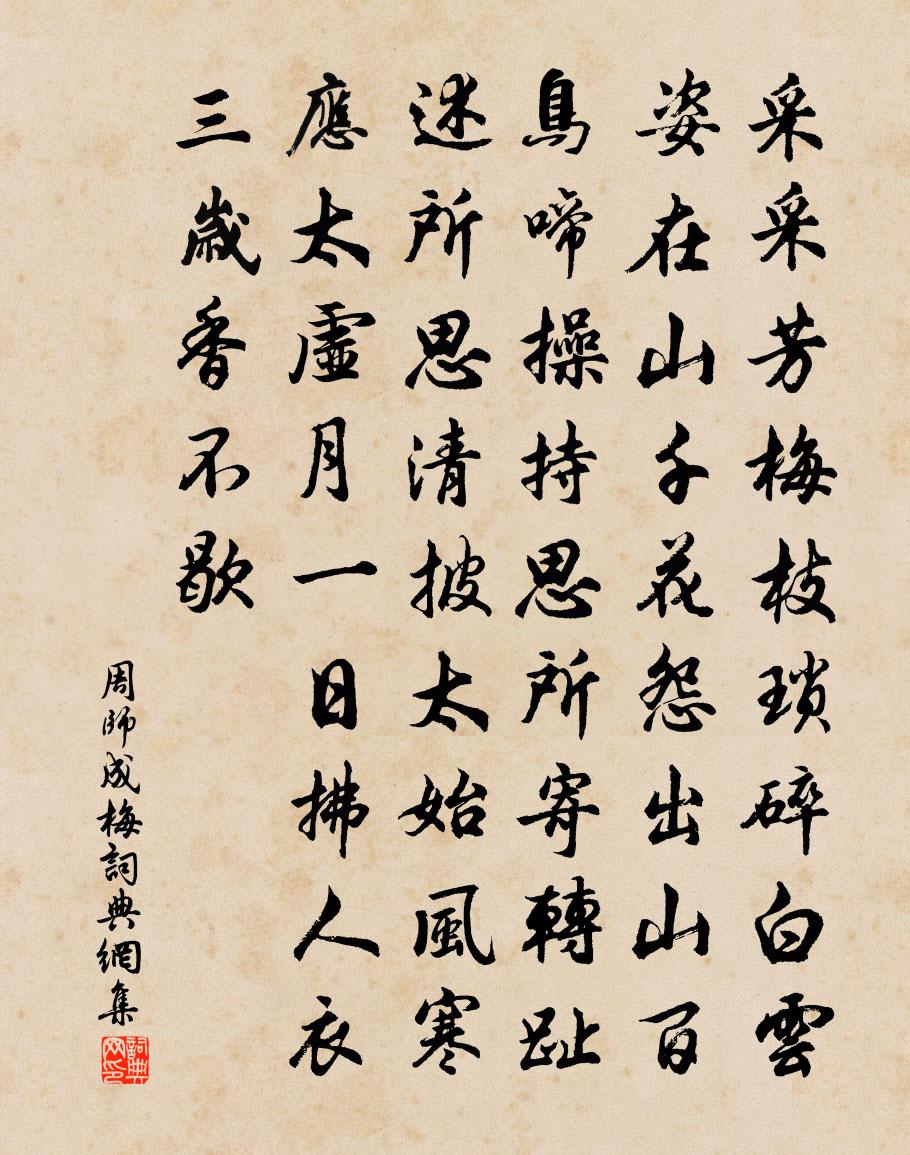 采采芳梅枝瑣碎白雲
姿在山千花怨出山百
鳥啼操持思所寄轉趾
迷所思清披太始風寒
應太虛月一日拂人衣
三歲香不歇
周師成梅詞典網集
詞典网印